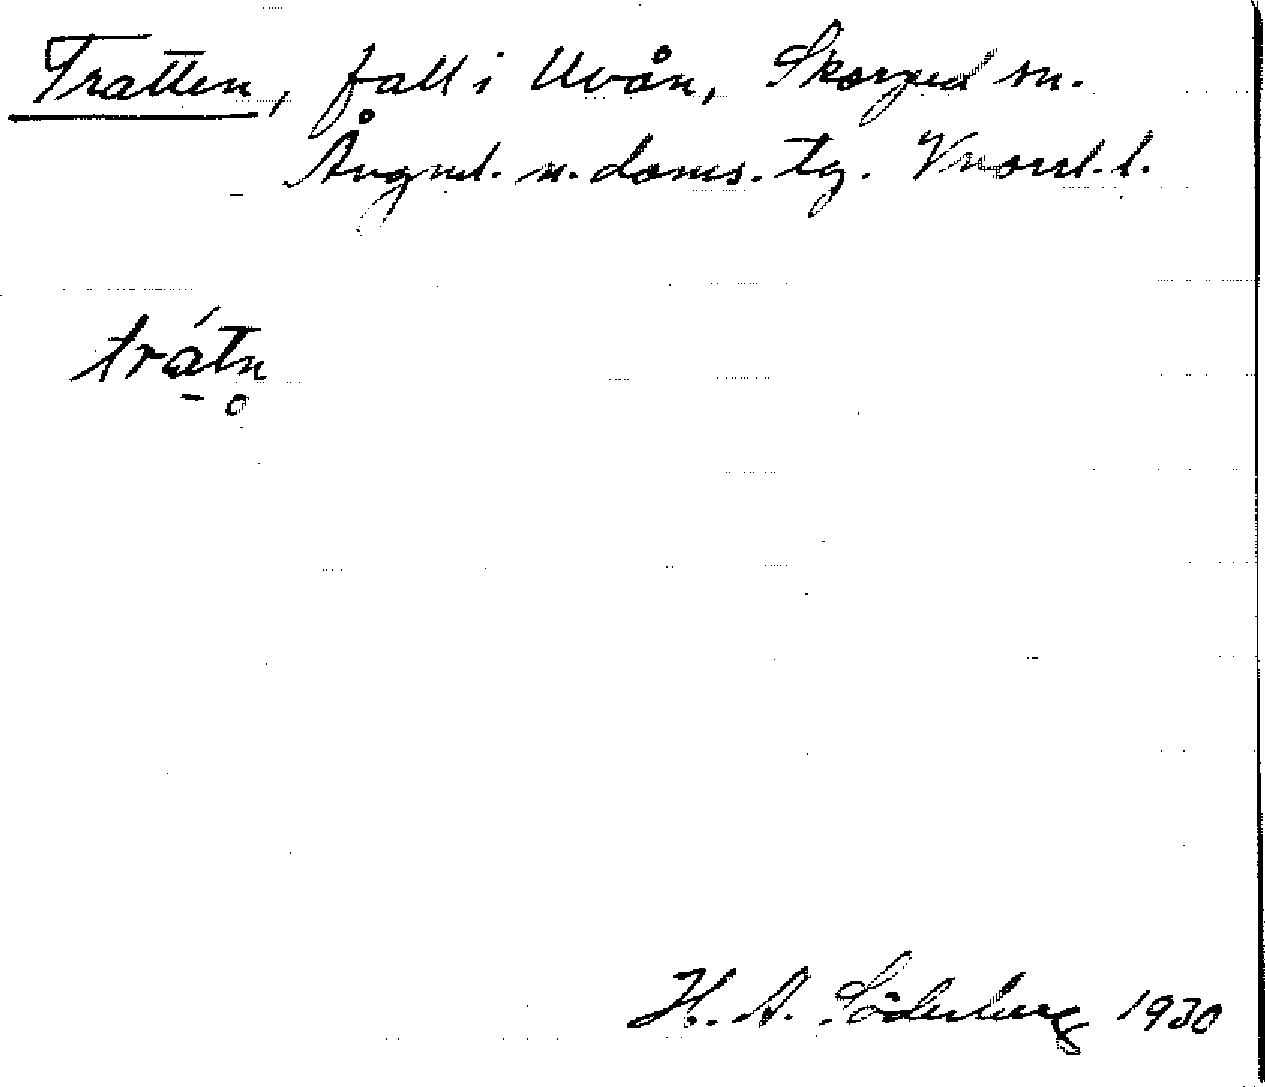 Tratten, fall i Uvån, Skorped sn.
Ångml. n. doms. tg. Vnorrl. l.
trátn̥
H. A. Söderberg 1930